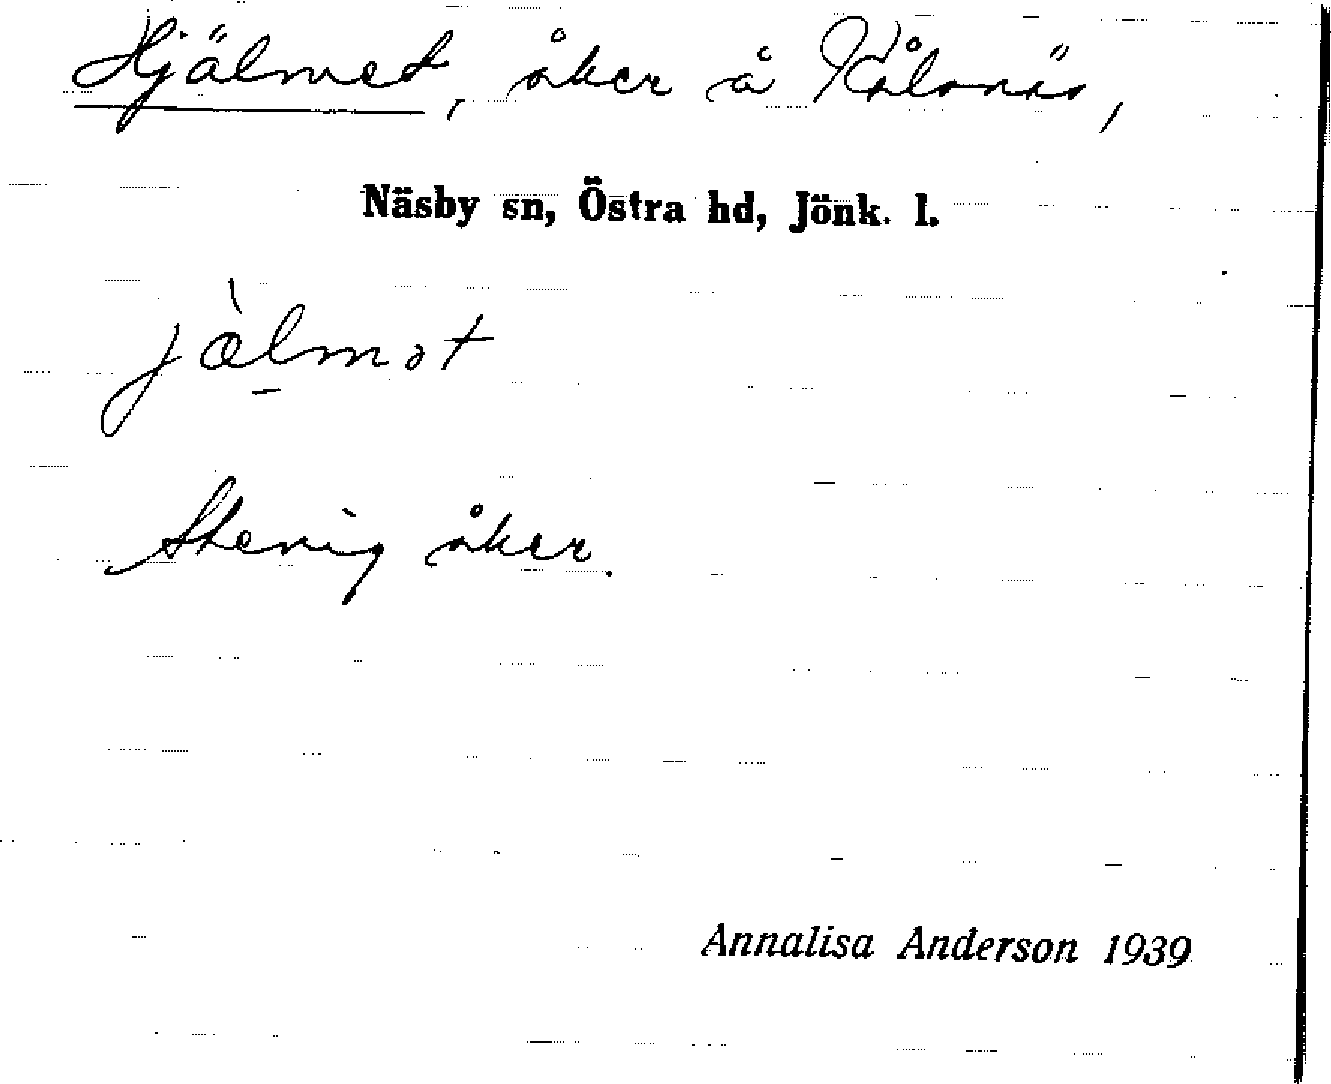 Hjälmet, åker å Kålsnäs,
Näsby sn, Östra hd, Jönk. l.
jàlmət
Stenig åker.
Annalisa Anderson 1939